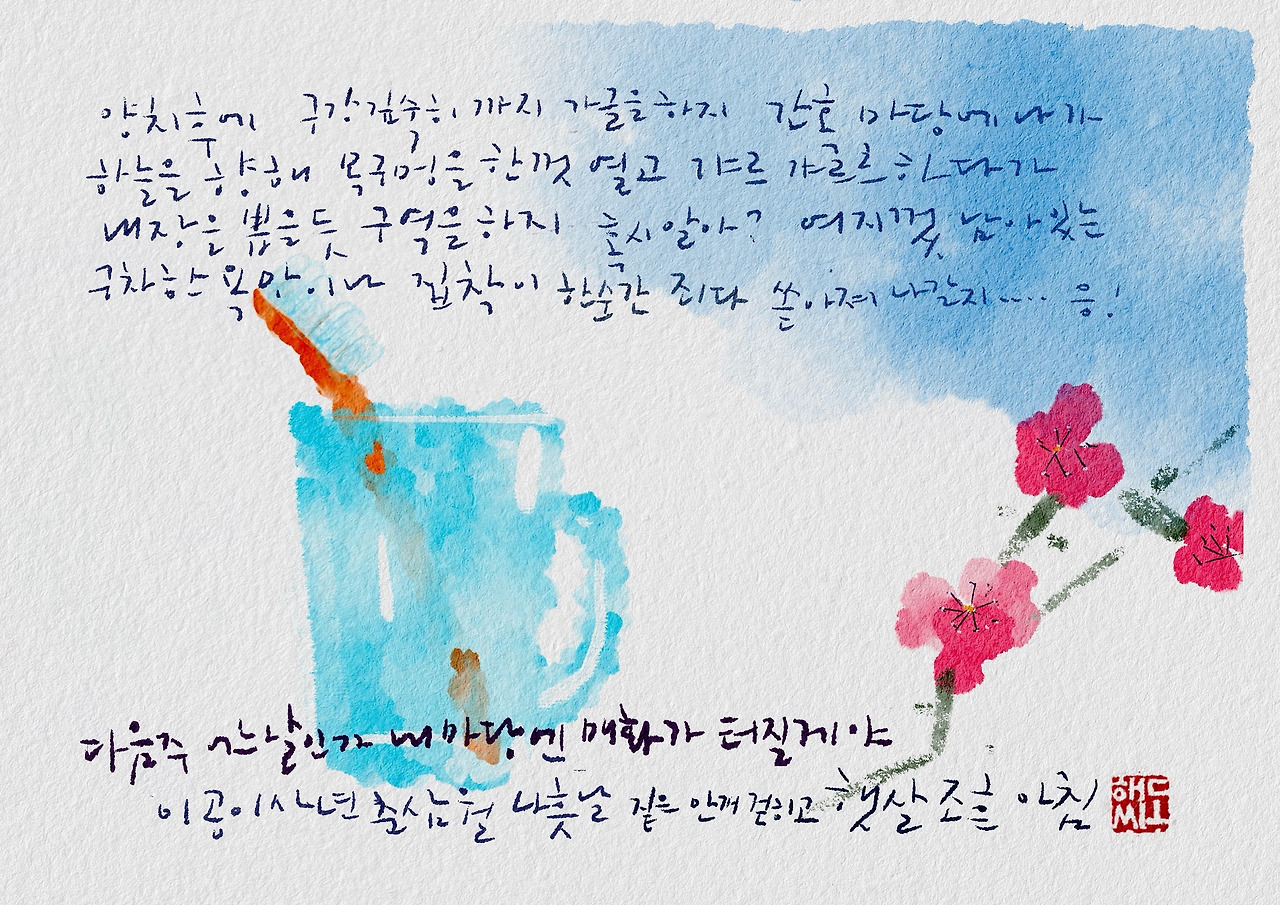 양치후에 구강깊숙히 까지 가글을하지 간혹 마당에 나가
하늘을 향해 목구멍을 한껏 열고 갸르 갸르르 하다가
내장을 뽑을듯 구역을 하지 혹시알아? 여지껏 남아있는
구차한 욕망이나 집착이 한순간 죄다 쏟아져 나갈지.... 응!
다음주 어느날인가 내마당엔 매화가 터질게야
이공이사년 춘삼월 나흗날 짙은 안개 걷히고 햇살 조흔 아침